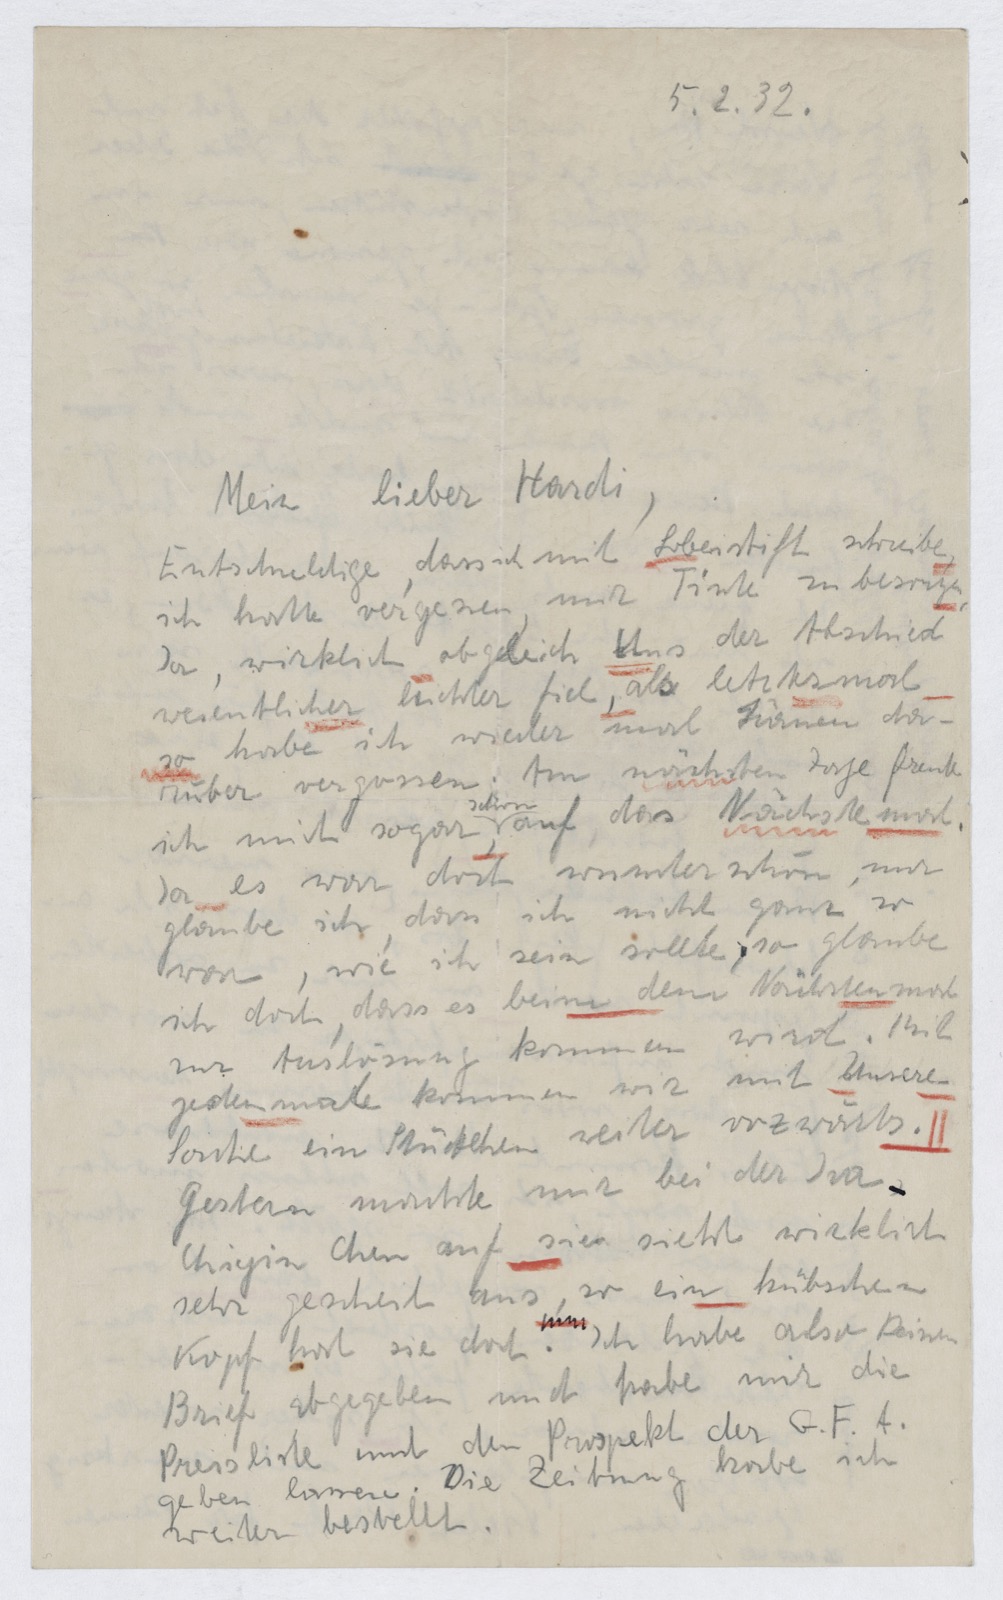 5.2.32.
Mein lieber Hardi,
Entschuldige, dass ich mit schreibe,
ich hatte vergessen, mir Tinte zu besorgen.
Ja, wirklich obgleich Uns der Abschied
wesentlicher leichter fiel, als letztesmal
so habe ich wieder mal Tränen dar-
rüber vergossen. Am nächsten Tage freute
ich mich sogar, schon auf das Nächstemal.
Ja es war doch wunderschön, nur
glaube ich, dass ich nicht ganz so
war, wie ich sein sollte, so glaube
ich doch, dass es beim dem Nächstenmal
zur Auslösung kommen wird. Mit
jedenmale kommen wir mit Unsere
Sache ein Stückchen weiter vorzwärts. ||
Gestern machte mir bei der Dra.
Chen auf sie sieht wirklich
sehr gescheit aus, so ein hübschen
Kopf hat sie doch. Ich habe also keinen
Brief abgegeben und habe mir die
Preisliste und den Prospekt der G.F.A.
geben lassen. Die Zeitung habe ich
weiter bestellt.